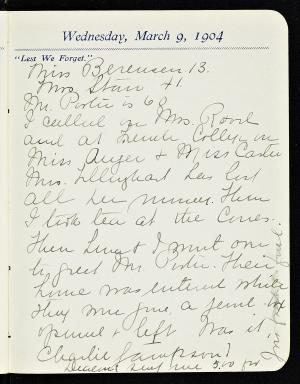 Wednesday, March 9, 1904
"Lest We Forget."
Miss Berensen 13.
Mrs Starr 41
Mr. Porter is 68
I called on Mrs. Rood
and at French College on
Miss Auger & Miss Carter
Mrs. has lost
all her money. Then
I took tea at the Cones.
Then & I went over
to greet Mr. Porter. Their
home was entered while
they were gone, a jewel box
opened & left. Was it
Charlie
sent me 5.00 for